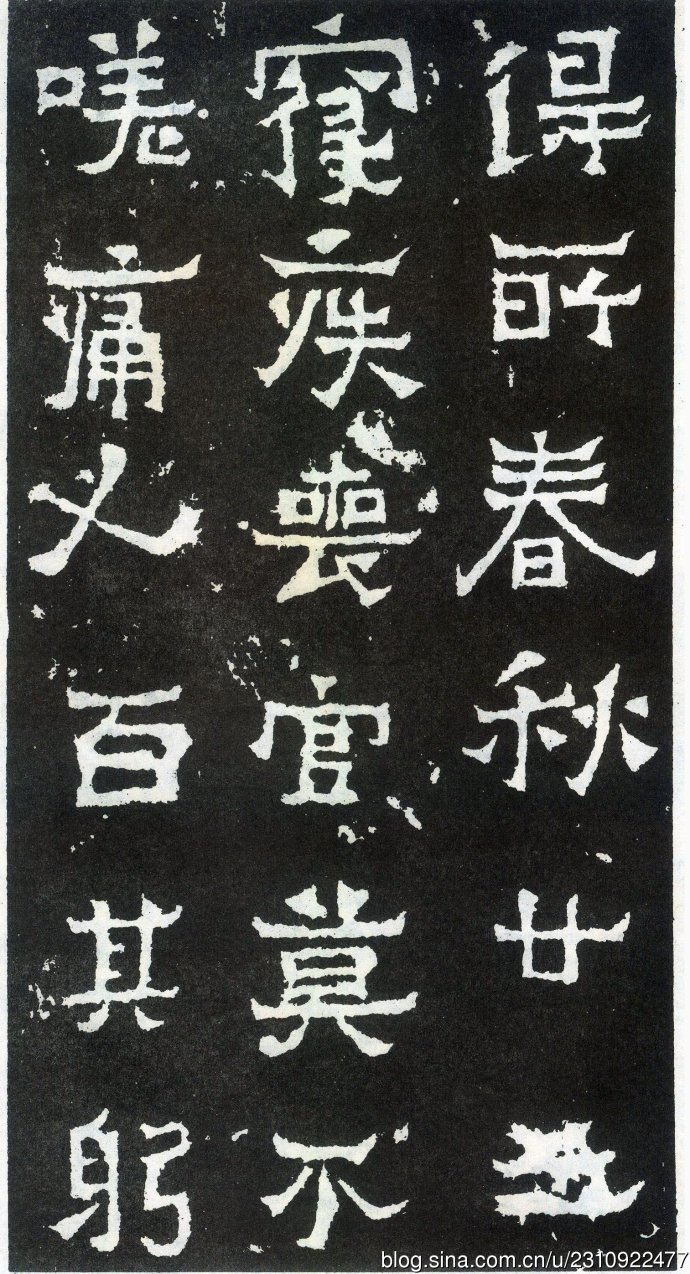 得所春秋廿
寑疾喪官莫不
嗟痛人百其躬
blog.sina.com.cn/u/2310922477